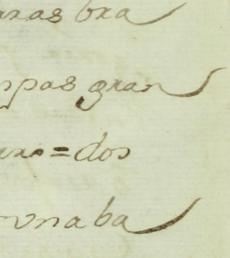 aras bra
mpas gran
= dos
una ba